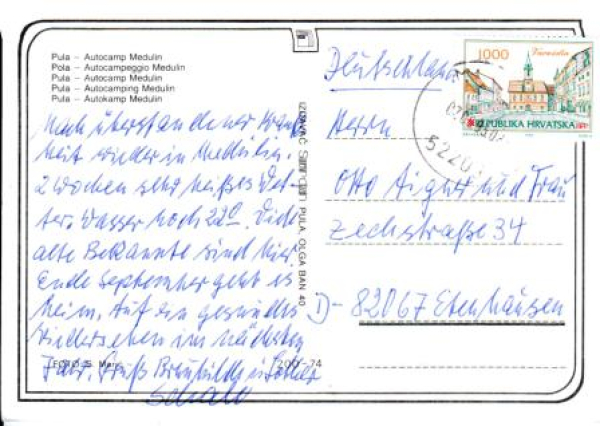 Pula – Autocamp Medulin
Pula – Autocampeggio Medulin
Pula – Autocamp Medulin
Pula – Autocamping Medulin
Pula – Autokamp Medulin
Nach überstandener Krank
heit wieder in Medulin.
2 Wochen sehr heißes Wet-
ter. Wasser noch 22°. Viele
alte Bekannte sind hier.
Ende September geht es
heim. Auf ein gesundes
Wiedersehen im nächsten
Jahr. Gruß Brunhilde u. Lothar
FOTO: S.
200-74
IZDAVAČ
PULA, OLGA BAN 40
Deutschland
1000
Varaždin
REPUBLIKA HRVATSKA
Herrn
Otto Aigner und Frau
Zechstraße 34
D- 82067 Ebenhausen